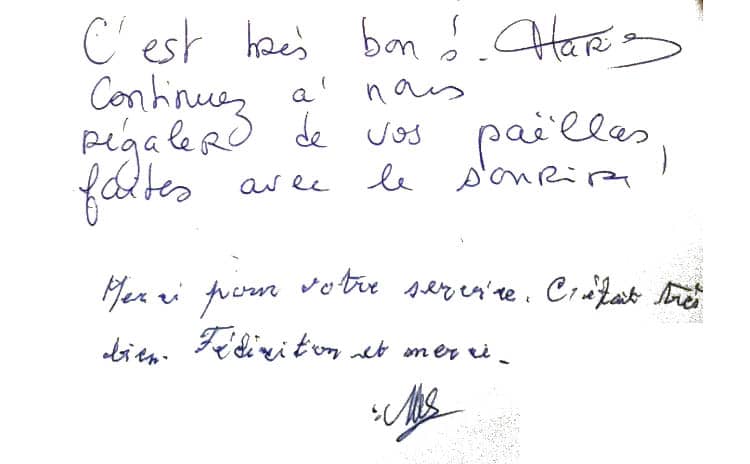 C'est très bon !
Continuez à nous
régaler de vos paëllas,
faites avec le sourire !
Merci pour votre service. C'était très
bien. Félicitation et merci.